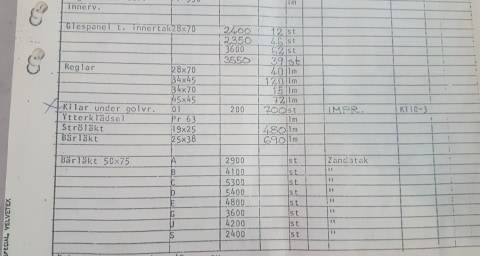 innerv. lm
Glespanel t. innertak 28x70 2400 12 st
2350 st
3600 52 st
3550 39 st
Reglar 28x70 40 lm
34x45 120 lm
34x70 15 lm
45x45 72 lm
Kilar under golvr. 200 700 st IMPR.
Ytterklädsel Pr 63 lm
Ströläkt 19x25 480 lm
Bärläkt 25x38 690 lm
Bärläkt 50x75 A 2900 st Zandatak
B 4100 st "
C 5300 st "
D 5400 st "
E 4800 st "
G 3600 st "
J 4200 st "
S 2400 st "
SPECIAL VELVETEX